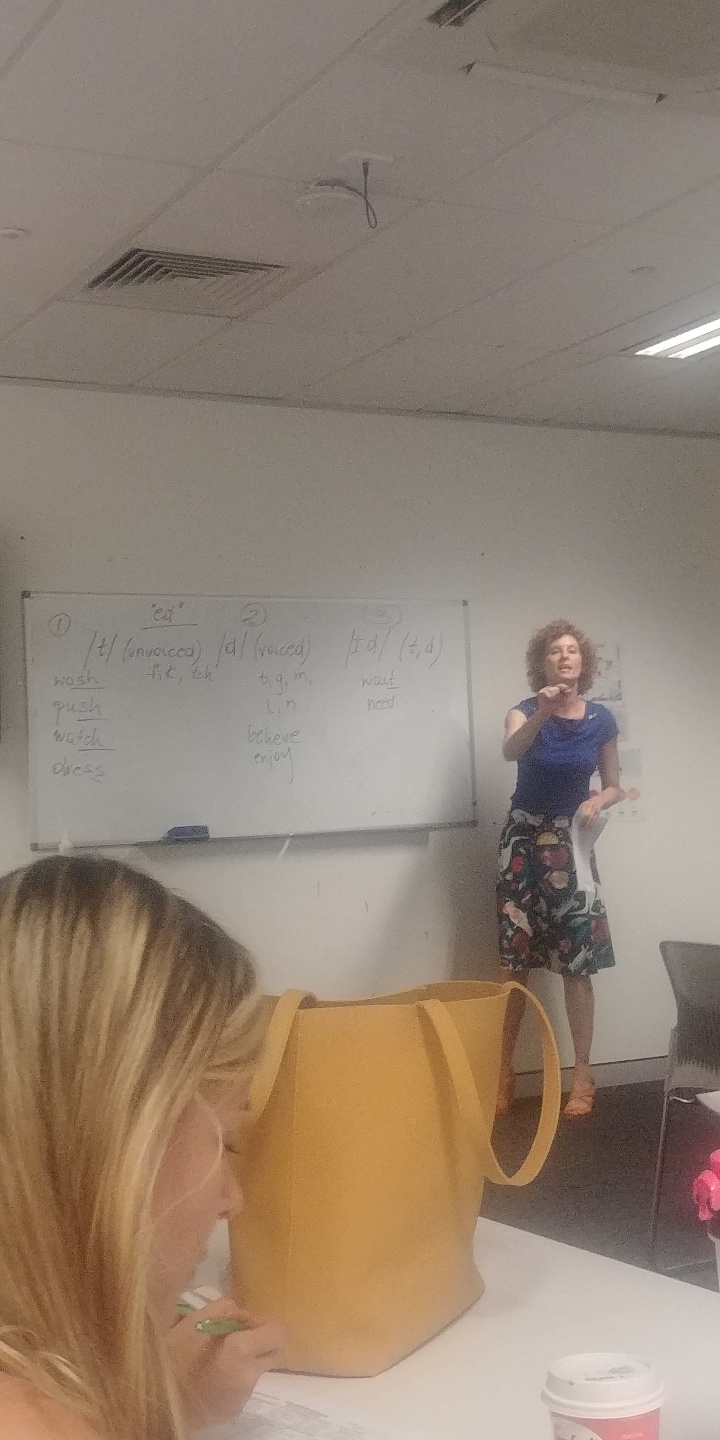 "ed"
① ② ③
/t/ (unvoiced) /d/ (voiced) /Id/ (t,d)
wash b, g, m, wait
push L, n need
watch believe
dress enjoy